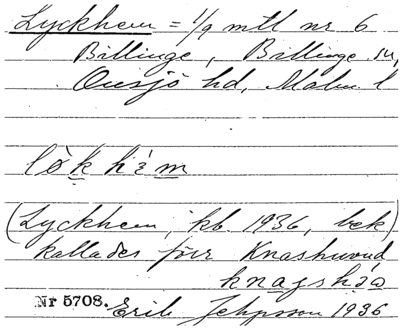 Lyckhem = 1/9 mtl nr 6
Billinge, Billinge sn,
Onsjö hd, Malm. l
lòk hɛ́m
(Lyckhem, kb. 1936, bek)
kallades förr Knashuvud
Nr 5708. Erik 1936